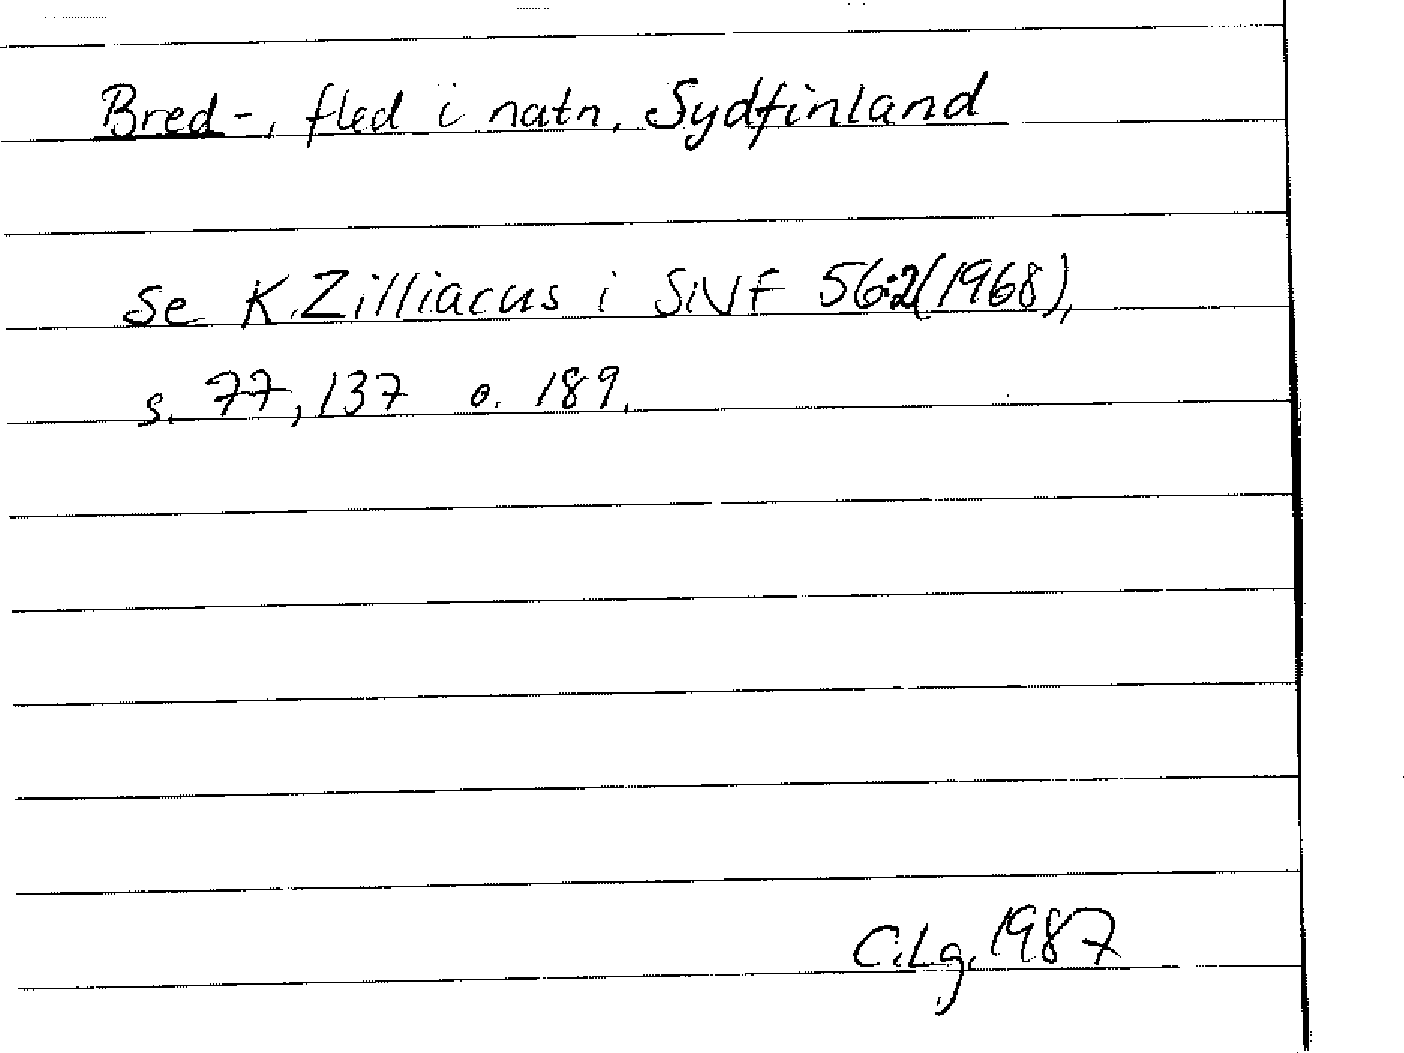 Bred-, fled i natn, Sydfinland
Se K.Zilliacus i SNF 56:2(1968),
s. 77, 137 o. 189.
C.Lg. 1987